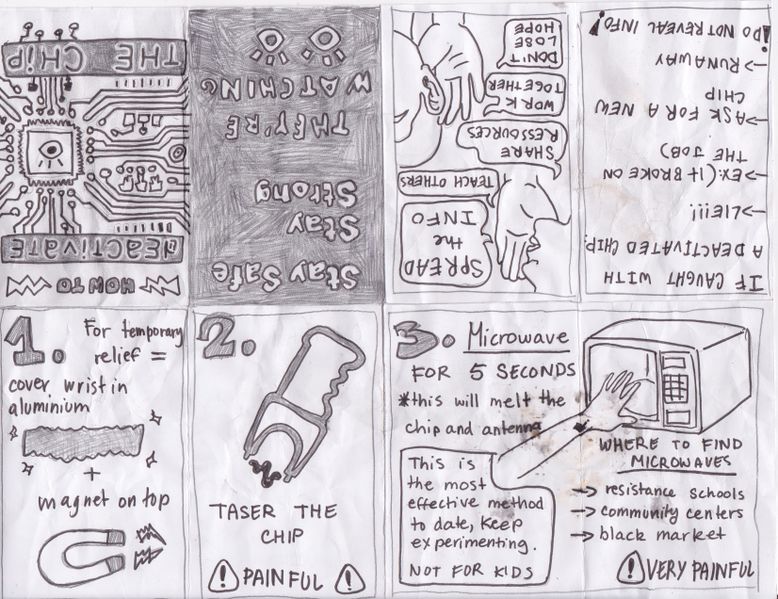 HOW TO
DEACTIVATE
THE CHIP
1.
For temporary
relief =
cover wrist in
aluminium
+
magnet on top
2.
TASER THE
CHIP
! PAINFUL !
3. Microwave
FOR 5 SECONDS
*this will melt the
chip and antenna
This is
the most
effective method
to date, keep
experimenting.
NOT FOR KIDS
WHERE TO FIND
MICROWAVES
→ resistance schools
→ community centers
→ black market
! VERY PAINFUL
IF CAUGHT WITH
A DEACTIVATED CHIP:
→LIE!!!!
→EX:(IT BROKE ON
THE JOB)
→ASK FOR A NEW
CHIP
→RUNAWAY
!DO NOT REVEAL INFO!
SPREAD
the
INFO
TEACH OTHERS
SHARE
RESSOURCES
WORK
TOGETHER
DON'T
LOSE
HOPE
Stay Safe
Stay
Strong
THEY'RE
WATCHING